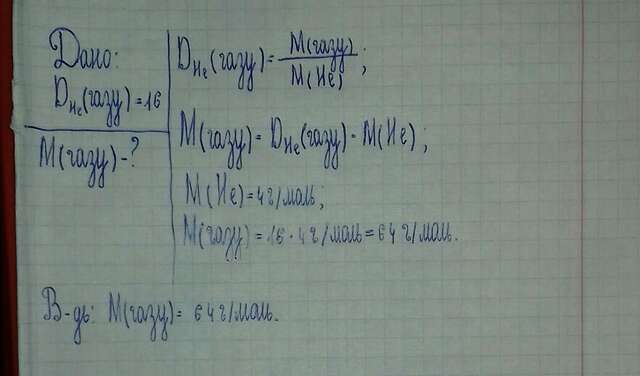 Дано:
D_He(газу)=16
M(газу)-?
D_He(газу)= M(газу)/M(He);
M(газу)= D_He(газу)·M(He);
M(He)=4г/моль;
M(газу)=16·4г/моль=64г/моль.
В-дь: M(газу)= 64г/моль.